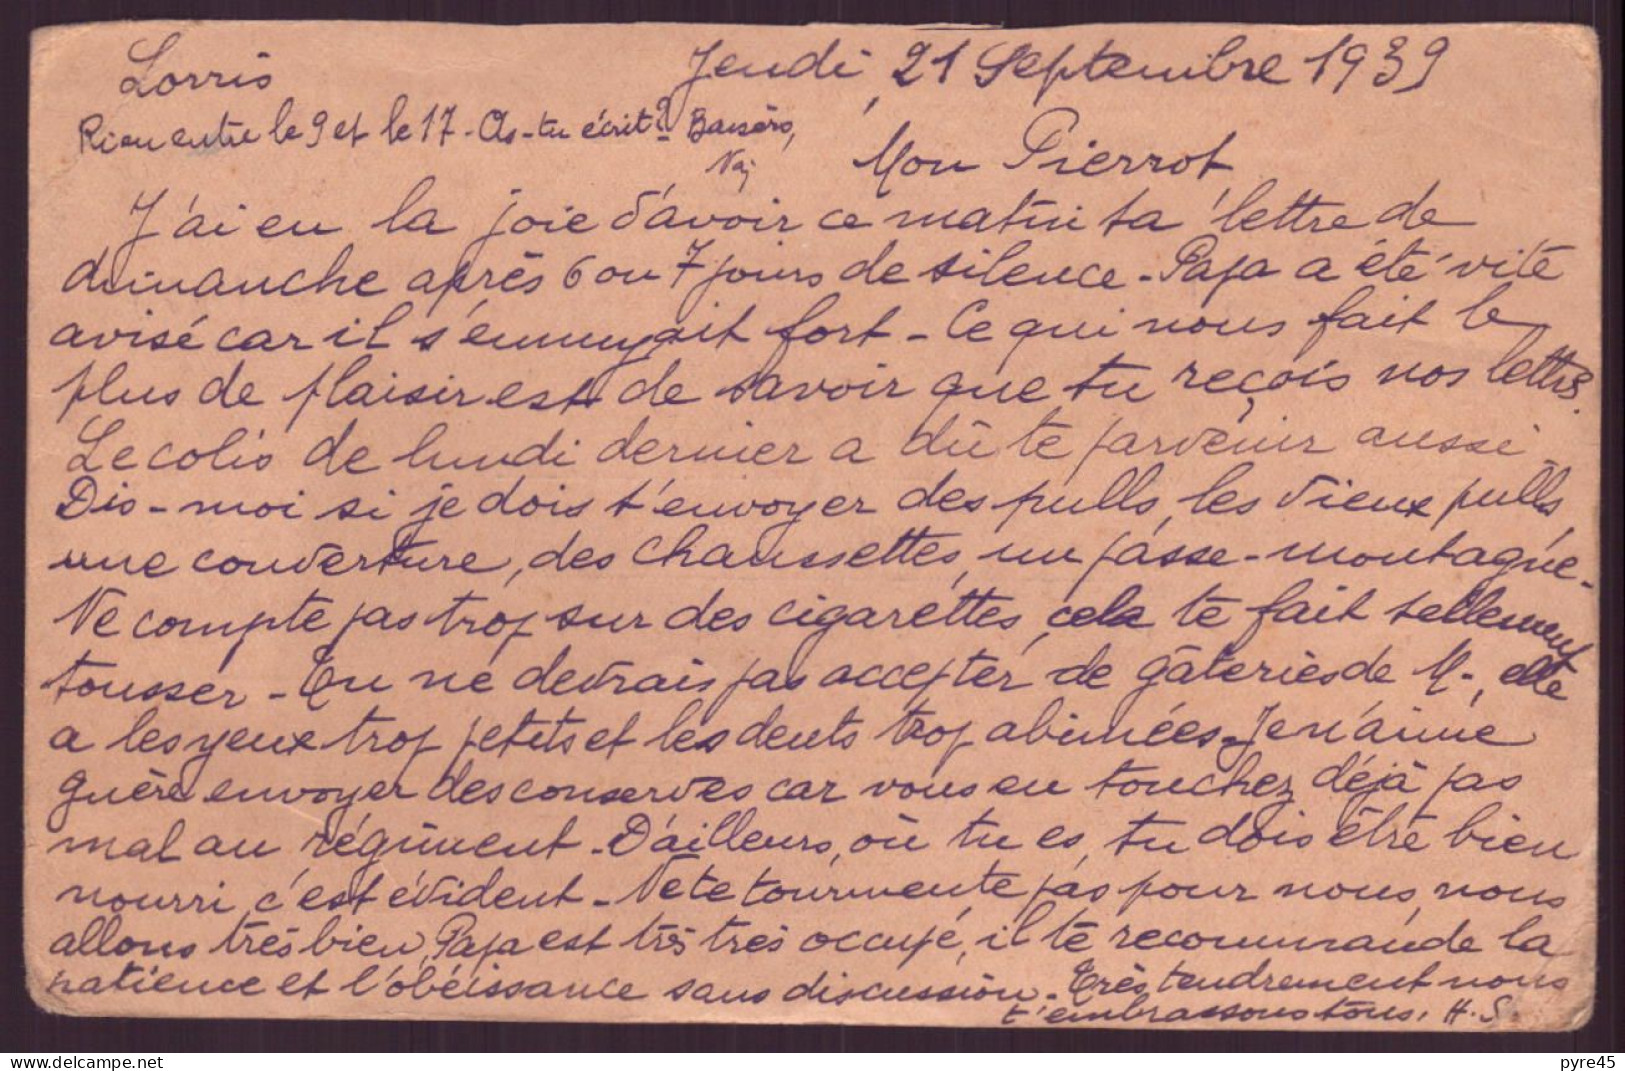 Lorris
Jeudi, 21 Septembre 1939
Rien entre le 9 et le 17 - As-tu écrit? Baisers,
Mon Pierrot
J'ai eu la joie d'avoir ce matin ta lettre de
dimanche après 6 ou 7 jours de silence - Papa a été vite
avisé car il s'ennuyait fort - Ce qui nous fait le
plus de plaisir est de savoir que tu reçois nos lettres.
Le colis de lundi dernier a dû te parvenir aussi -
Dis-moi si je dois t'envoyer des pulls, les vieux pulls,
une couverture, des chaussettes, un passe-montagne -
Ne compte pas trop sur des cigarettes, cela te fait tellement
tousser - Tu ne devrais pas accepter de gâteries de M -, elle
a les yeux trop petits et les dents trop abimées - Je n'aime
guère envoyer des conserves car vous en touchez déjà pas
mal au régiment - D'ailleurs, où tu es, tu dois être bien
nourri, c'est évident - Ne te tourmente pas pour nous, nous
allons très bien, Papa est très très occupé, il te recommande la
patience et l'obéissance sans discussion - Très tendrement nous
t'embrassons tous. H. S.
pyre45